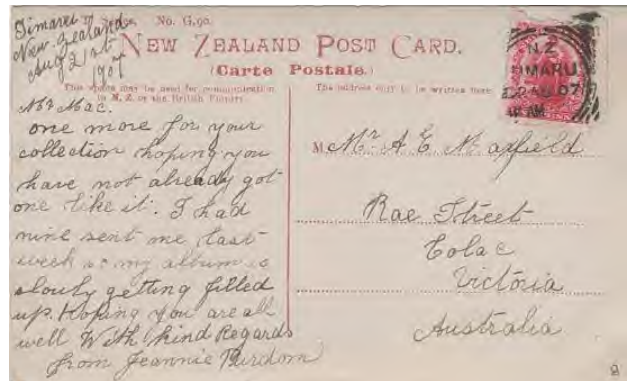 Timaru
New Zealand
Aug 21st
1907
No. G.90.
NEW ZEALAND POST CARD.
(Carte Postale.)
This space may be used for communication
in N. Z. or the British
The address only to be written here
Mr Mac.
one more for your
collection hoping you
have not already got
one like it. I had
nine sent me last
week so my album is
slowly getting filled
up. Hoping you are all
well With kind Regards
from Jeannie Purdom
M Mr A E Maxfield
Rae Street
Colac
Victoria
Australia
N.Z.
TIMARU
22 AU 07